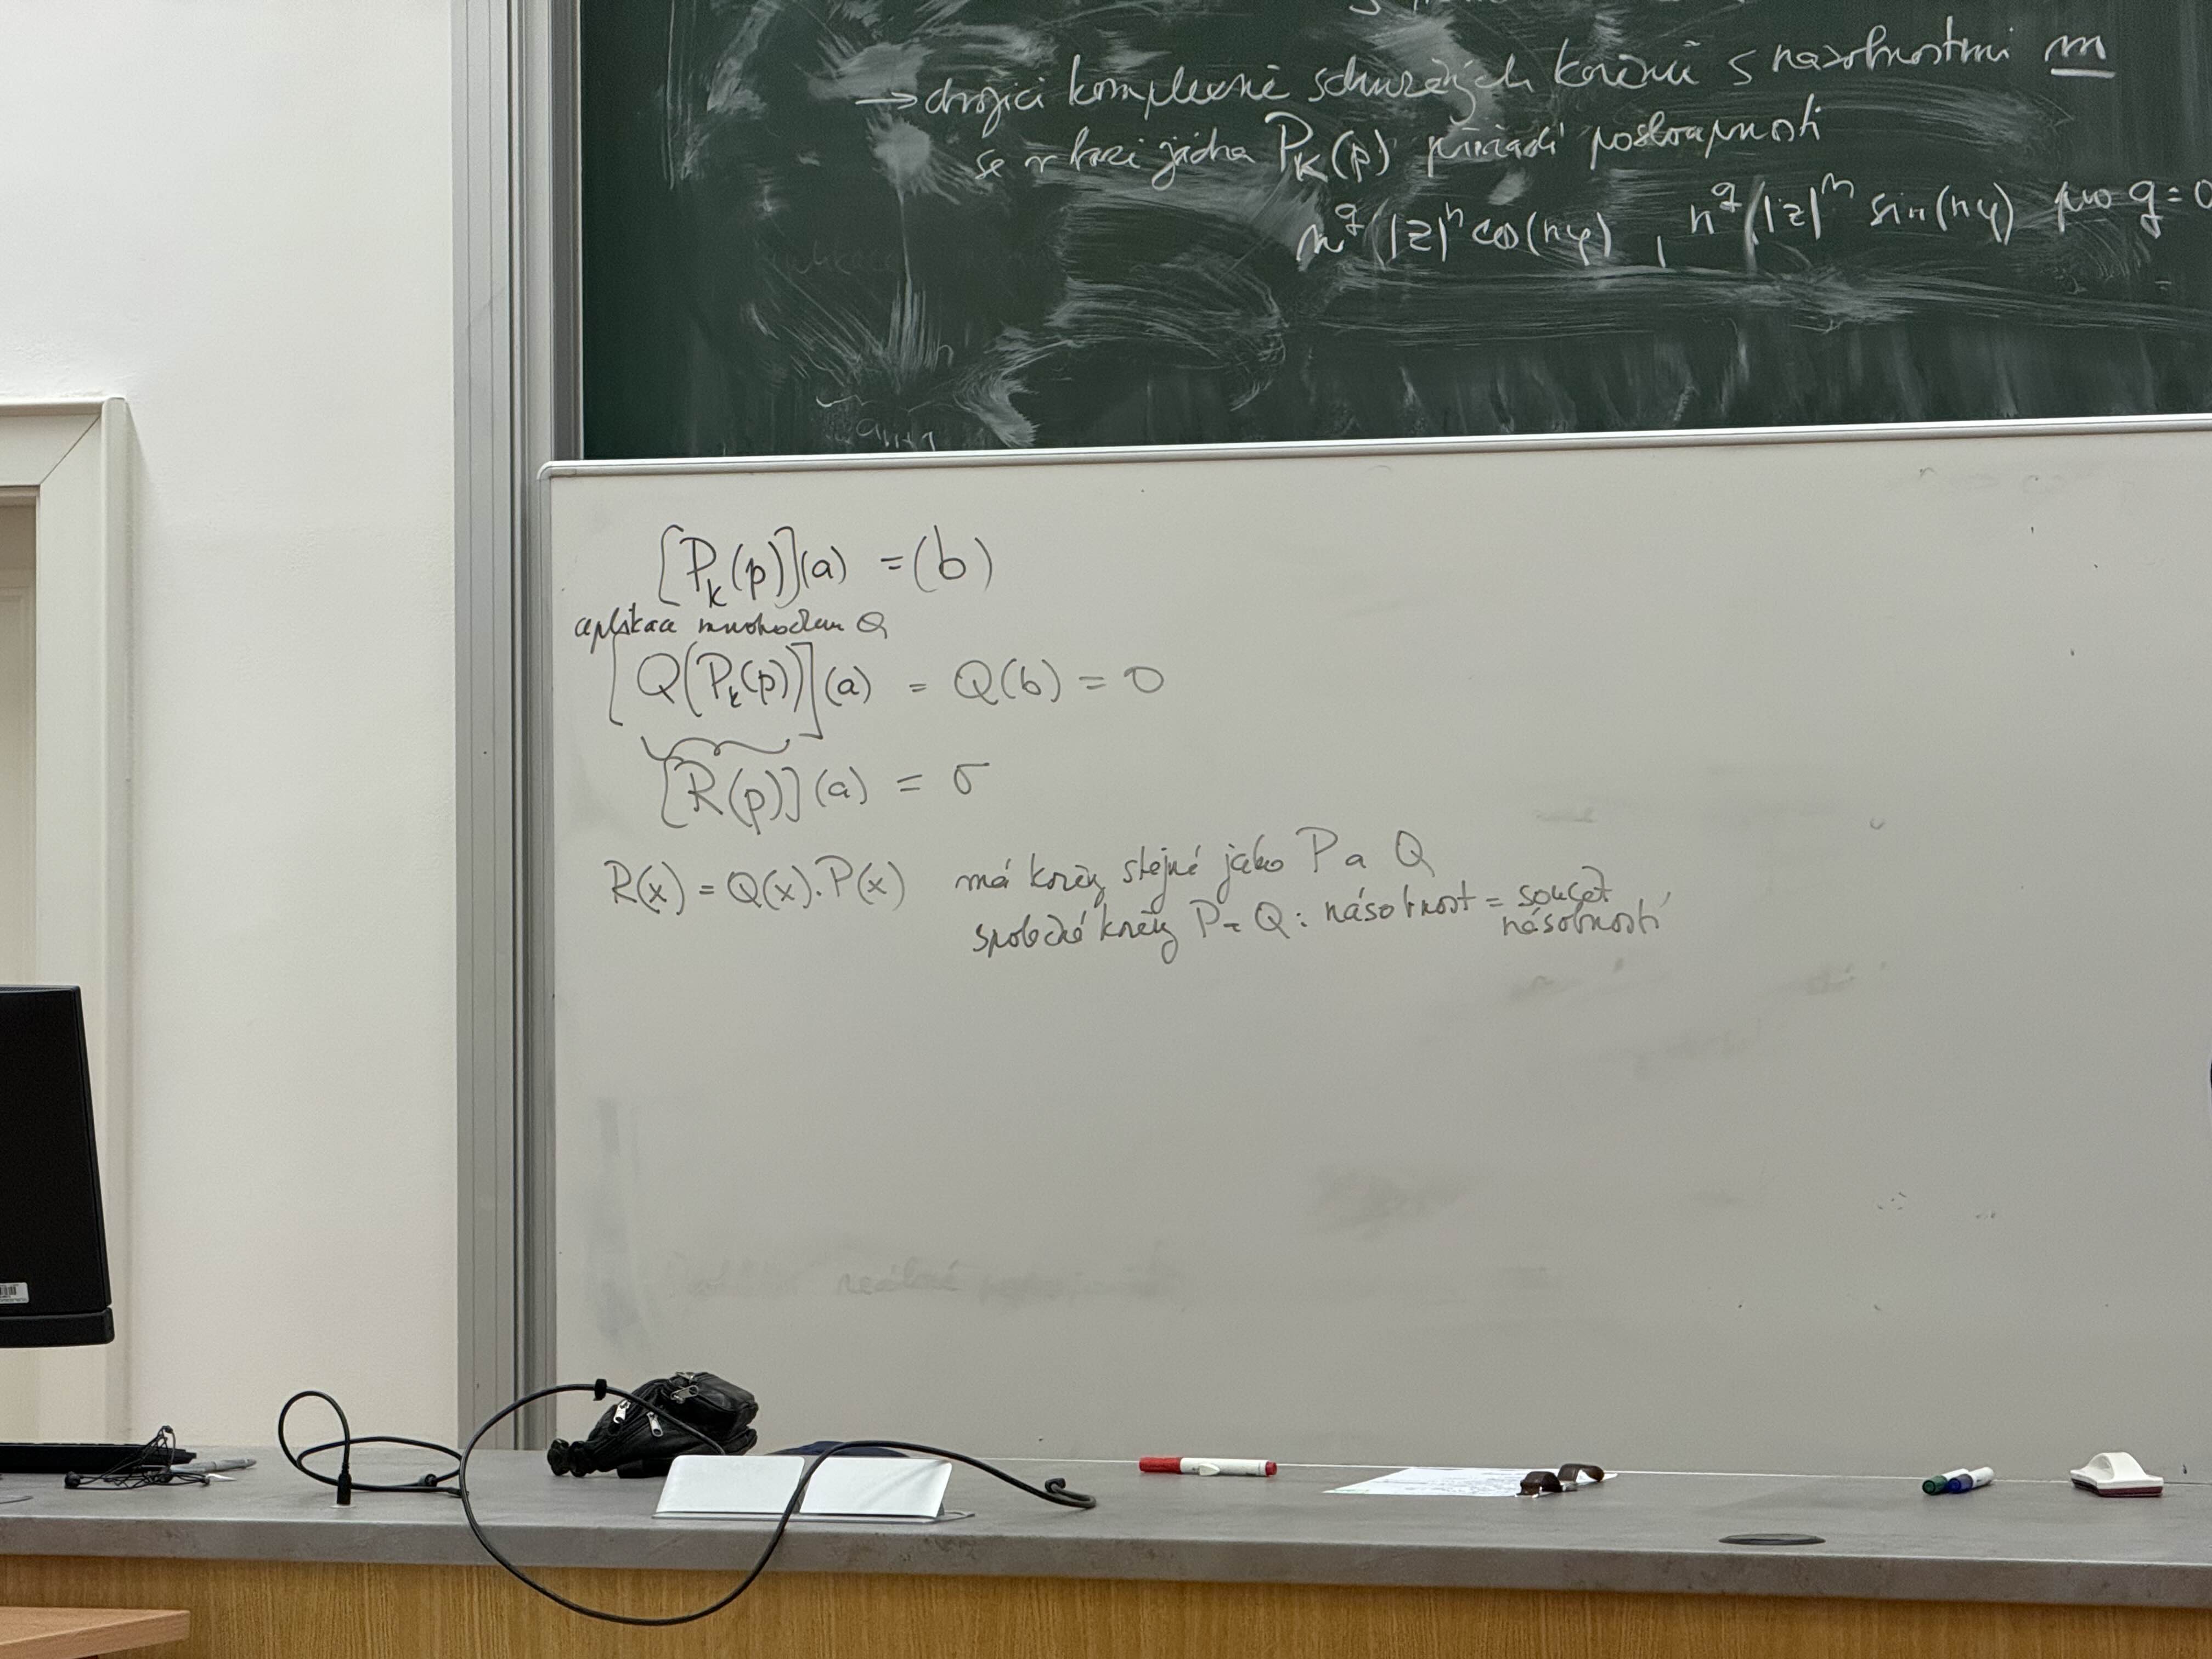 → dvojici komplexně sdružených kořenů s násobnostmi m
se v bázi jádra P_K(p) přiřadí posloupnosti
n^q |z|^n cos(nφ) , n^q |z|^n sin(nφ) pro q=0
[P_k(p)](a) = (b)
aplikace mnohočlenu Q
[Q(P_k(p))](a) = Q(b) = 0
[R(p)](a) = σ
R(x) = Q(x).P(x) má kořeny stejné jako P a Q
společné kořeny P a Q : násobnost = součet
násobností
reálné